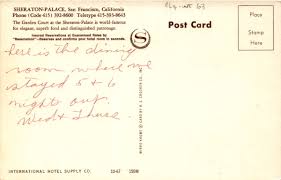 SHERATON-PALACE, San Francisco, California
Phone Code (415) 392-8600 Teletype 415-393-8643
The Garden Court at the Sheraton-Palace is world-famous
for elegant, superb food and distinguished patronage.
Insured Reservations at Guaranteed Rates by
"Reservatron" - Reserves and confirms your hotel room in seconds.
Post Card
63
S
Here is the dining
room where we
stayed 5 & 6
nights our.
Wed & Thurs.
INTERNATIONAL HOTEL SUPPLY CO.